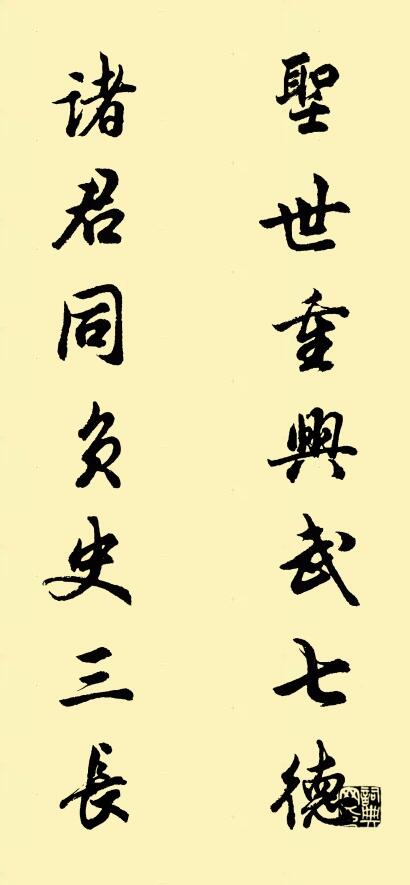 聖世重興武七德
諸君同負史三長